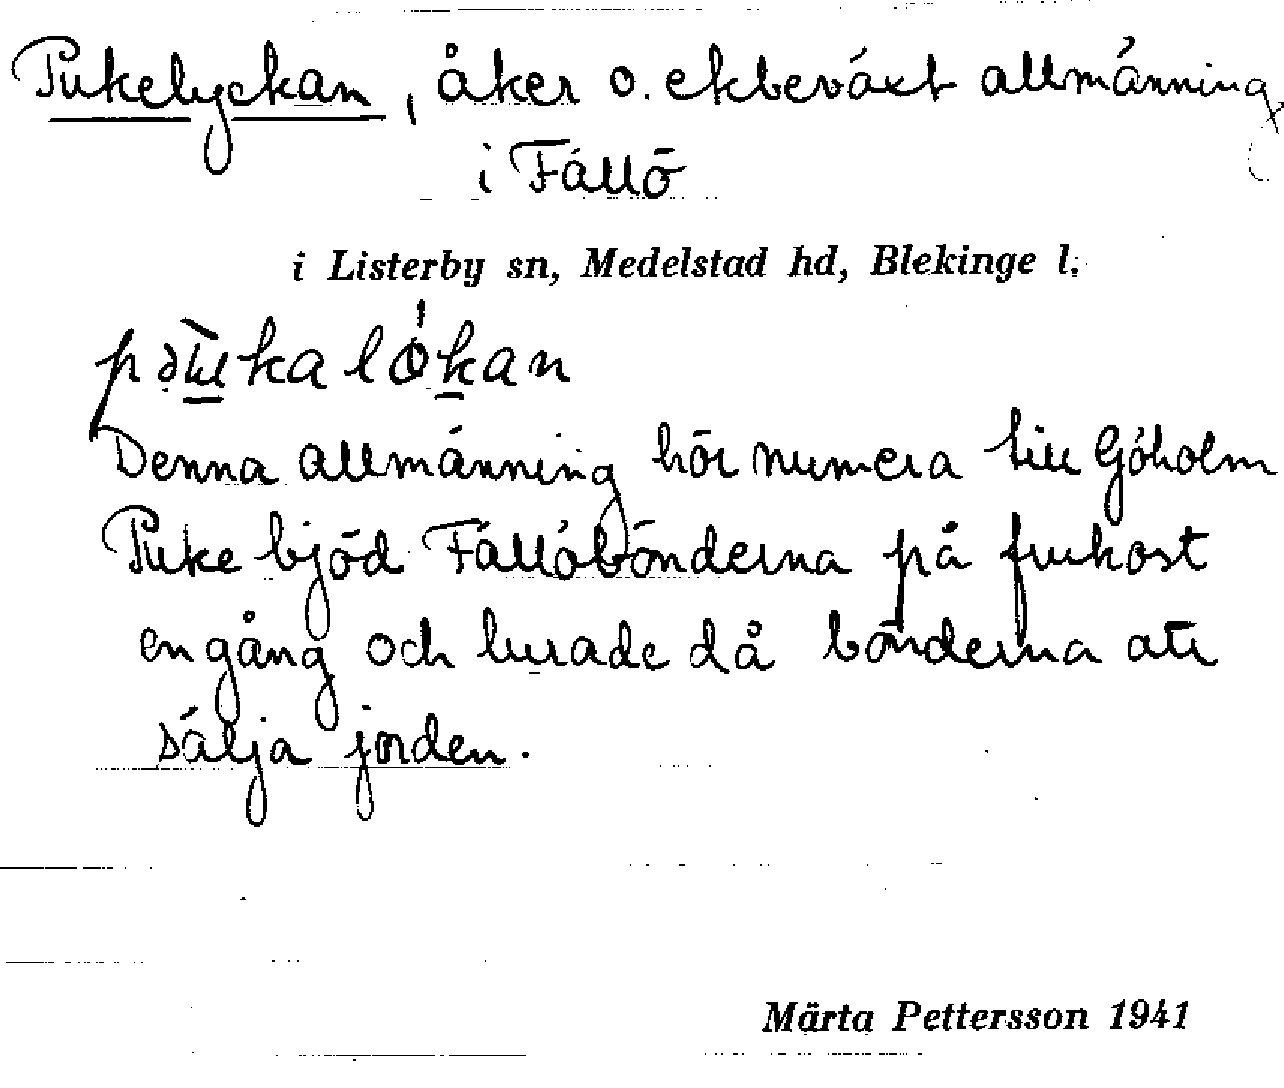 Pukelyckan, åker o. ekbeväxt allmänning
i Fällö
i Listerby sn, Medelstad hd, Blekinge l.
Denna allmänning hör numera till Göholm
Puke bjöd Fällöbönderna på frukost
en gång och lurade då bönderna att
sälja jorden.
Märta Pettersson 1941